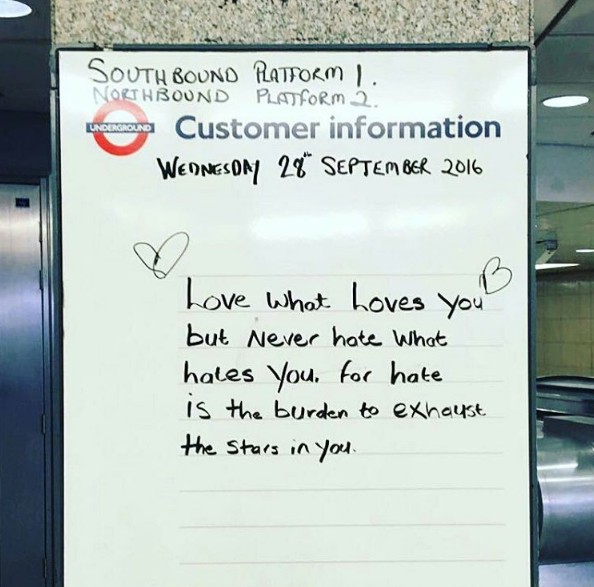 SOUTHBOUND PLATFORM 1.
NORTHBOUND PLATFORM 2.
UNDERGROUND Customer information
WEDNESDAY 28TH SEPTEMBER 2016
Love What Loves You
but Never hate What
hates You. for hate
is the burden to exhaust
the stars in you.